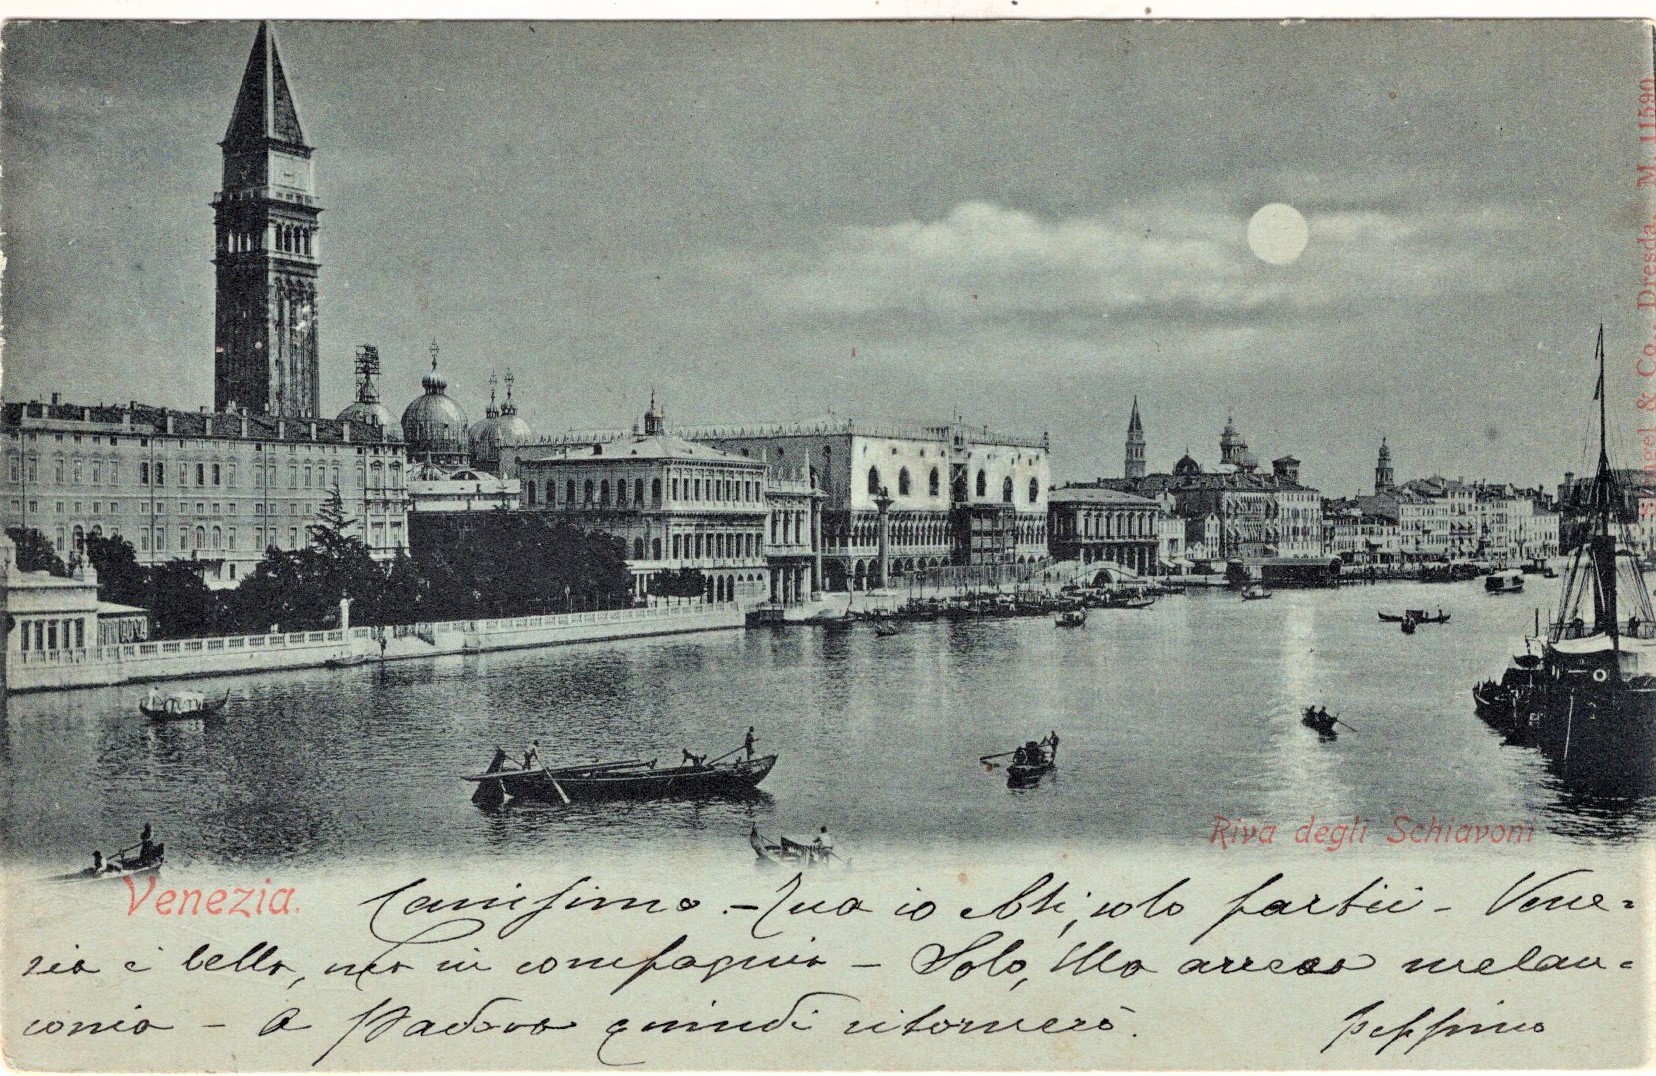 Stengel & Co., Dresda M. 11590
Riva degli Schiavoni
Venezia.
Carissimo. - Qua io solo partii - Vene=
zia è bella, ma in compagnia - Sola, Ella arreca melan=
conia - A Padova quindi ritornerò.
Peppino